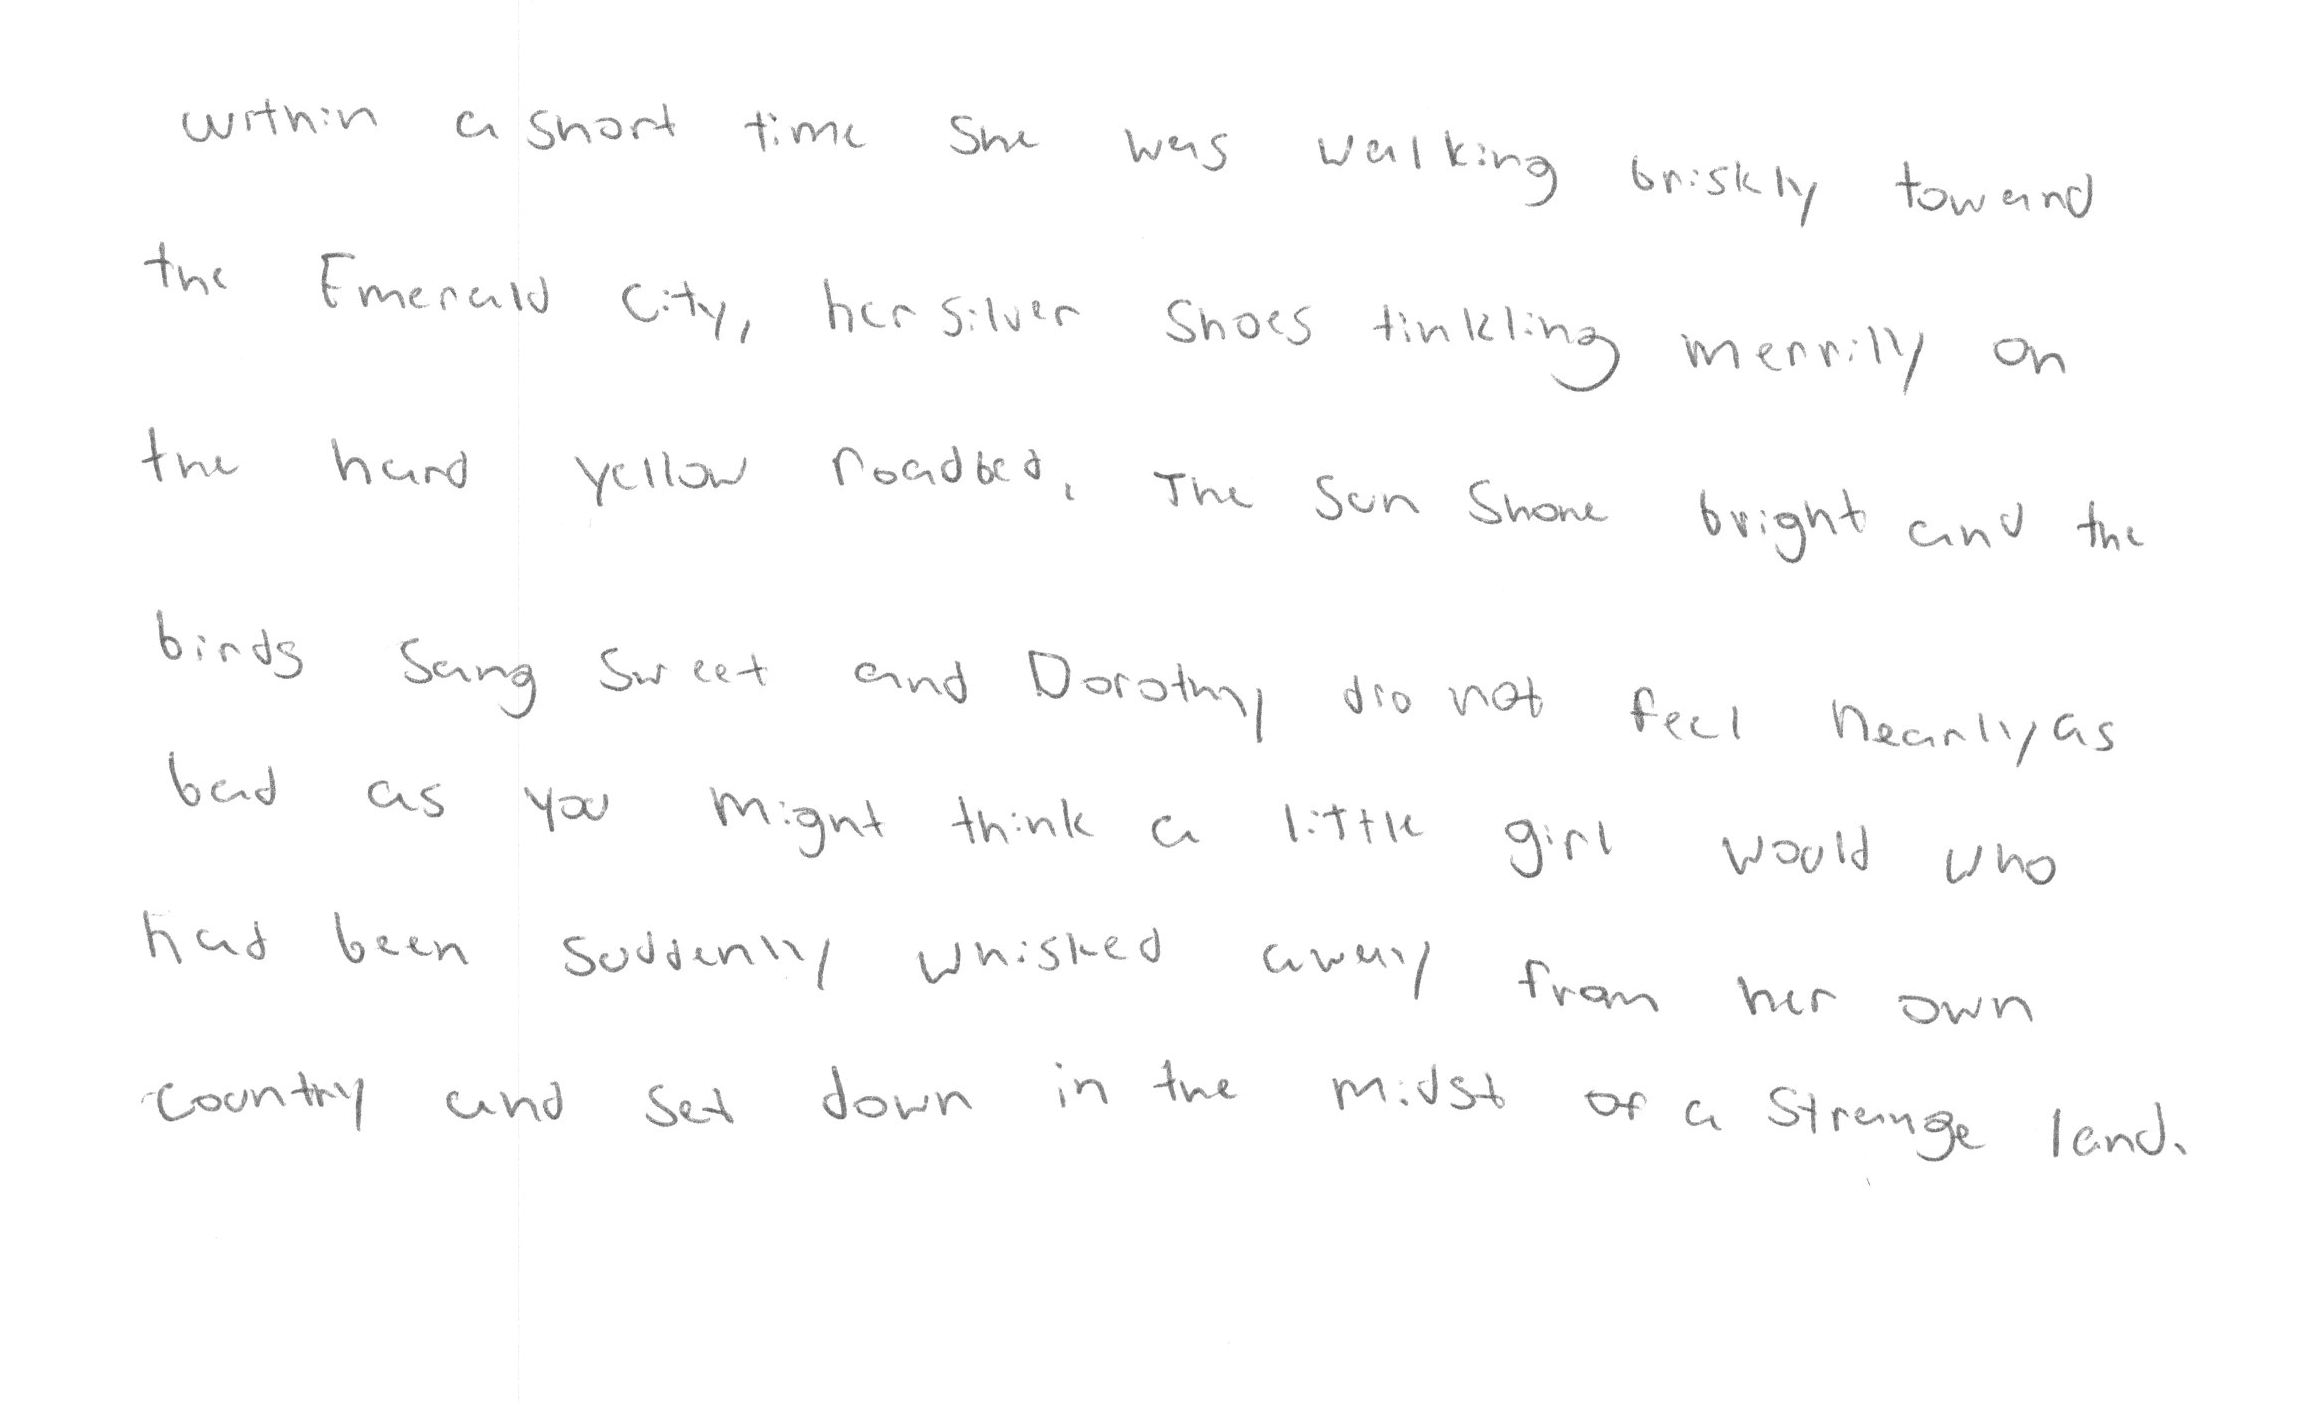 within a short time She was walking briskly toward
the Emerald City, her Silver Shoes tinkling merrily on
the hard yellow roadbed. The Sun Shone bright and the
birds Sang Sweet and Dorothy did not feel nearly as
bad as you might think a little girl would who
had been suddenly whisked away from her own
country and set down in the midst of a Strange land.